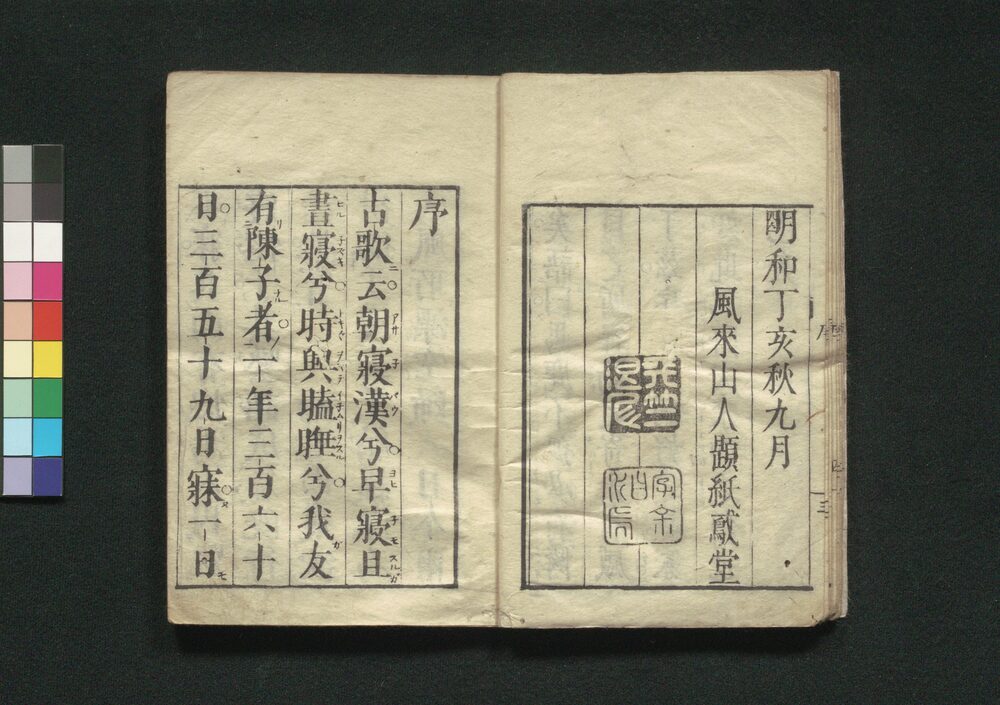 明和丁亥秋九月
風來山人題紙鳶堂
序
古歌云朝寢漢兮早寢且
晝寢兮時與瞌睡兮我友
有陳子者一年三百六十
日三百五十九日寐一日